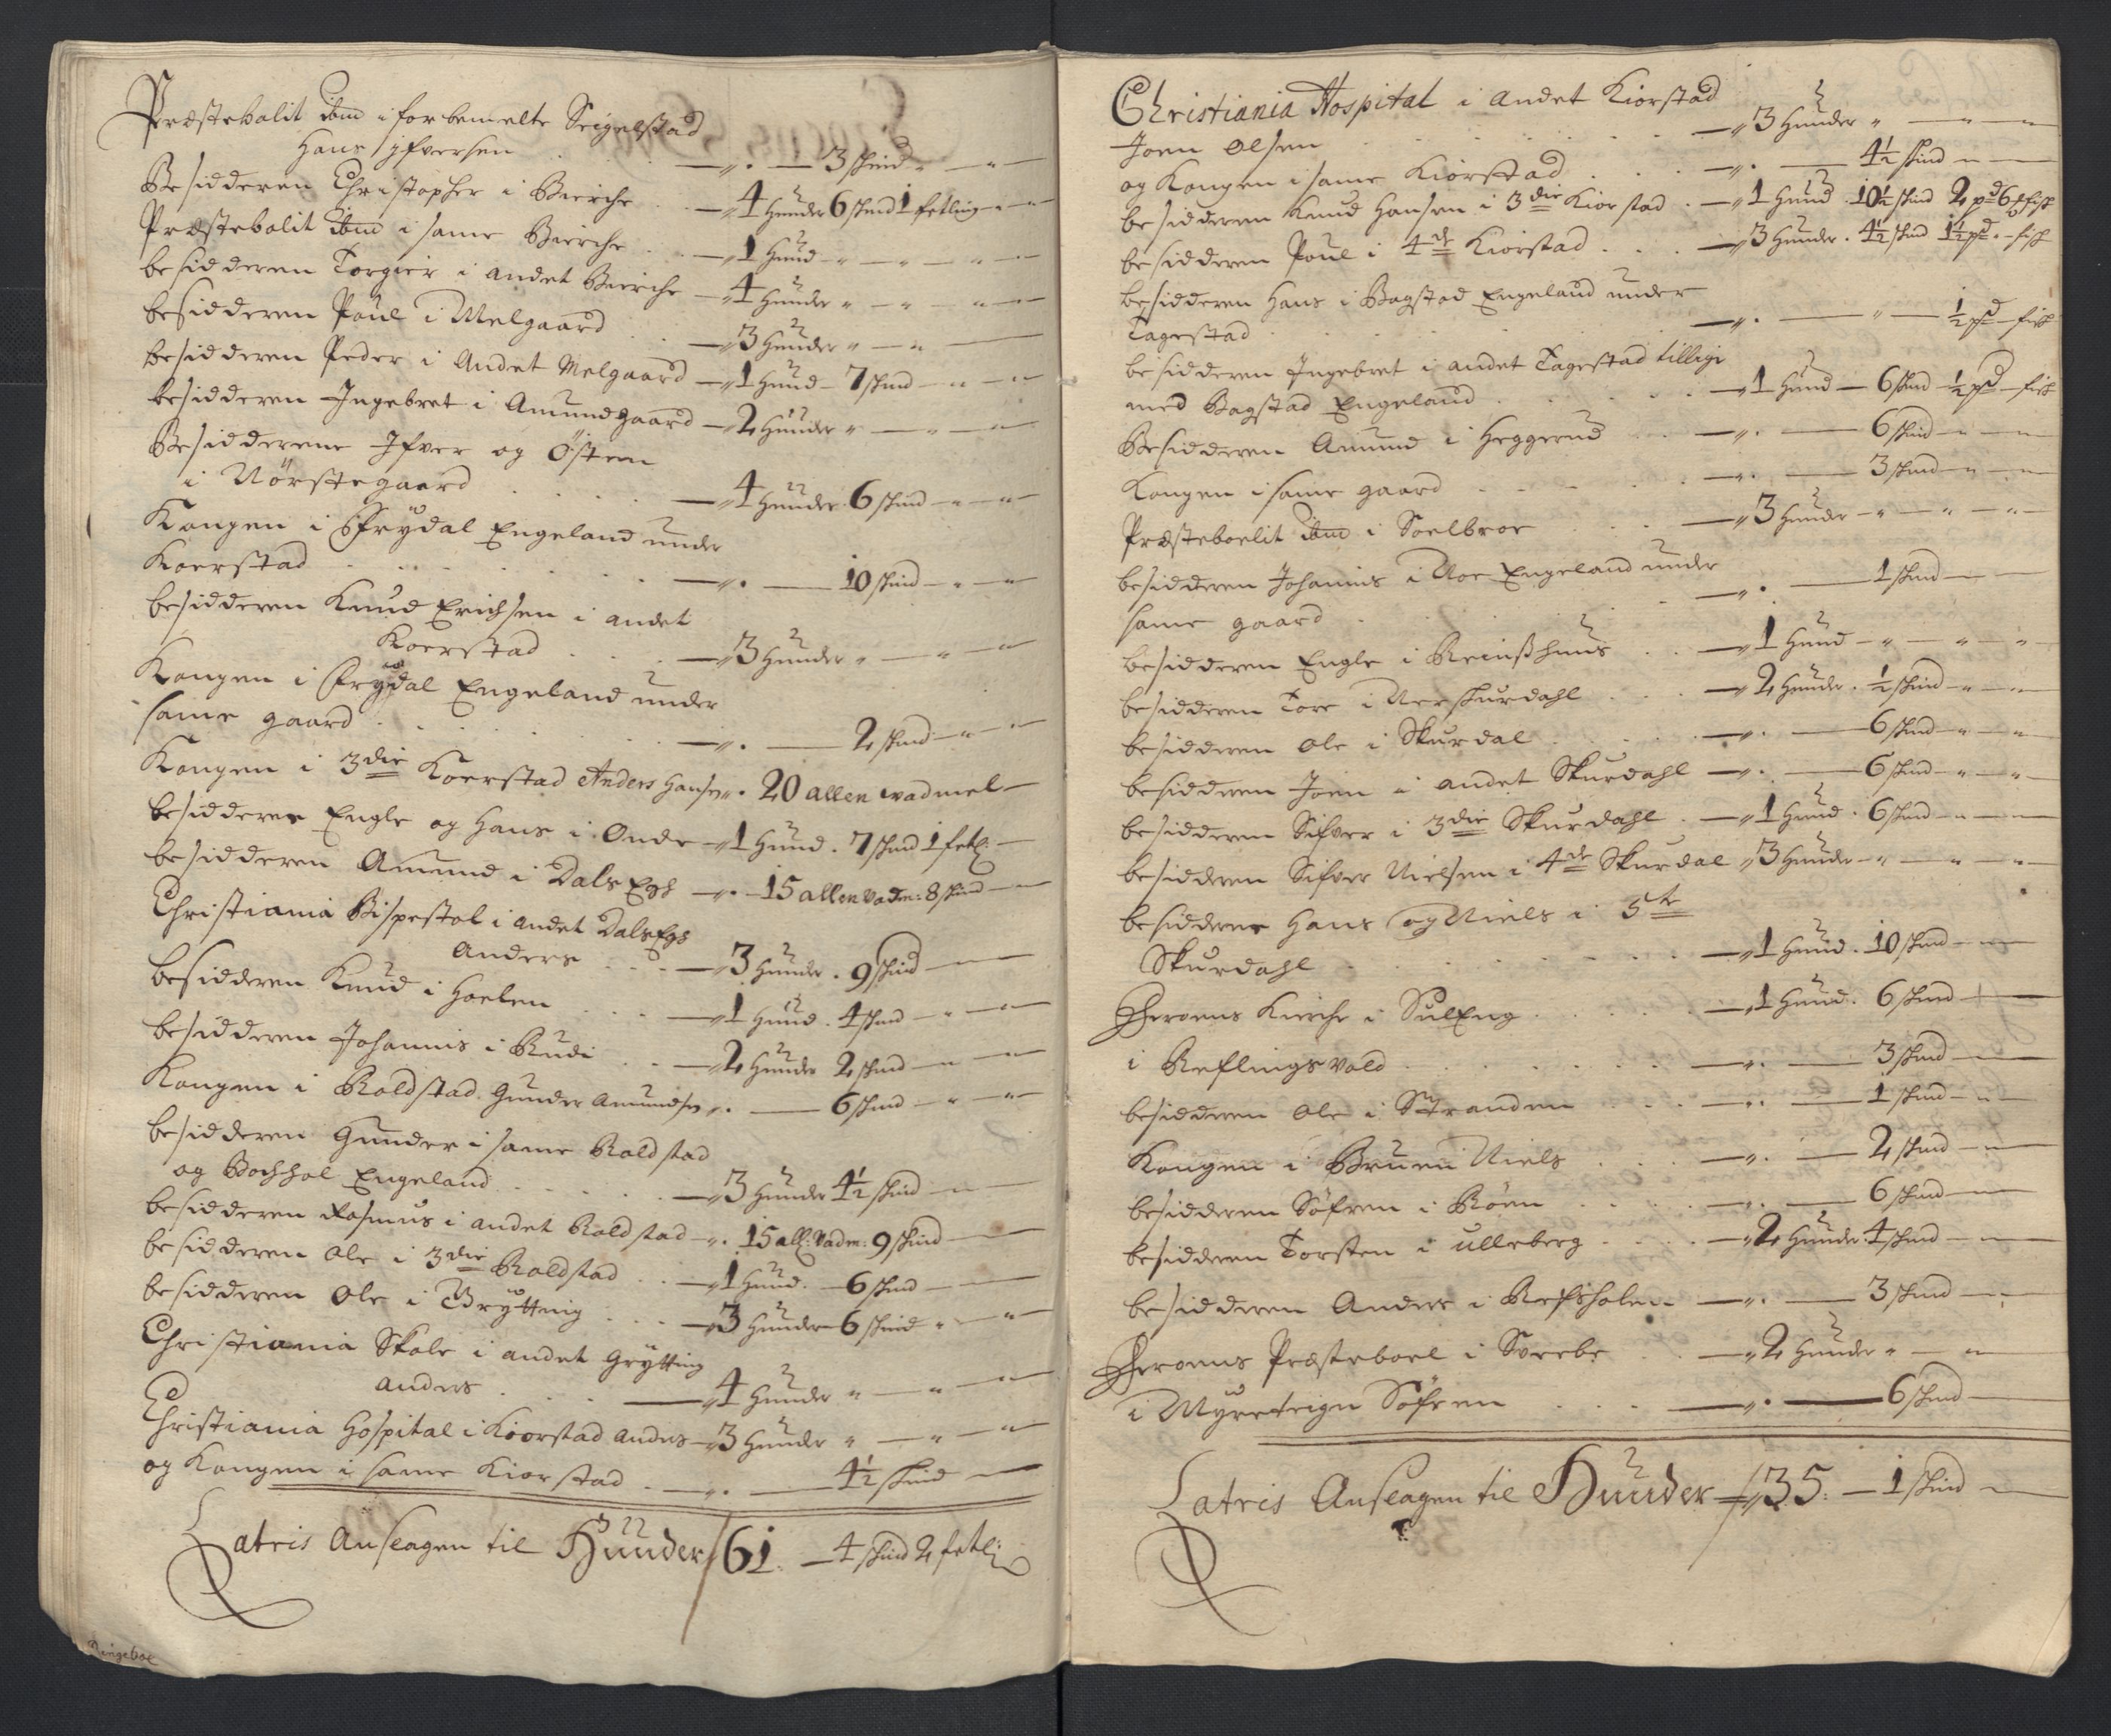 Præstebolit ibm i forbemelte Seigelstad
Hans Ifversen . . . — „ . — 3 skind „ — „ —
Besidderen Christopher i Bierche . . — „ 4 Hunder 6 skind 1 fetling — „ —
Præstebolit ibm i same Bierche . . — „ 1 Hund — „ — „ — „ —
besidderen Torgier i andet Bierche — „ 4 Hunder „ — „ — „ —
besidderen Poul i Melgaard . . — „ 3 Hunder „ — „ —
besidderen Peder i Andet Melgaard — „ 1 Hund — 7 skind — „ — „ —
besidderen Ingebret i Amundgaard — „ 2 Hunder „ — „ — „ —
Besidderene Ifver og Østen
i Nørstegaard . . . . . — „ 4 Hunder 6 skind — „ — „ —
Kongen i Frydal Engeland under
Koerstad . . . . . . — „ . — 10 skind — „ — „ —
besidderen Knud Erichsen i andet
Koerstad . . . — „ 3 Hunder „ — „ — „ —
Kongen i Frydal Engeland under
same gaard . . . . . — „ . — 2 skind — „ — „ —
Kongen i 3die Koerstad Anders Hansen „ . 20 allen wadmel —
besidderne Engle og Hans i Onde — „ 1 Hund . 7 skind 1 fetl: —
besidderen Amund i Dals Egh — „ . — 15 allen Vadm: 8 skind —
Christiania Bispestol i andet Dals Egs
Anders . . . — „ 3 Hunder . 9 skind — —
besidderen Knud i Hoelen . . . — „ 1 Hund . 4 skind — „ — „ —
besidderen Johannis i Rudi . . — „ 2 Hunder 2 skind — „ —
Kongen i Roldstad Gunder Amundsen „ . — 6 skind — „ — „ —
besidderen Gunder i same Roldstad
og Bochhol Engeland . . . . . — „ 3 Hunder 4½ skind — „ —
besidderen Rasmus i andet Roldstad — „ . 15 all: Vadm: 9 skind —
besidderen Ole i 3die Roldstad . . — „ 1 Hund . — 6 skind — —
besidderen Ole i Brytting . . . — „ 3 Hunder 6 skind „ — „ —
Christiania Skole i andet Grytting
Anders . . . — „ 4 Hunder „ — „ — —
Christiania Hospital i Kiorstad Anders — „ 3 Hunder „ — „ — „ —
og Kongen i same Kiorstad . — „ . — 4½ skind —
Latris Anslagen til Hunder 61. — 4 skind 2 fetl:
Ringeboe
Christiania Hospital i andet Kiorstad
Joen Olsen . . . . . — „ 3 Hunder „ — „ —
og Kongen i same Kiorstad . . . — „ . — 4½ skind — „ —
besidderen Knud Hansen i 3die Kiorstad . — „ 1 Hund . 10½ skind 2 pd 6 fisk
besidderen Poul i 4de Kiorstad . . . — „ 3 Hunder . 4½ skind 1½ pd . — fisk
besidderen Hans i Bagstad Engeland under
Tagestad . . . . . . — „ . — „ — ½ pd — fisk
besidderen Ingebret i andet Tagestad tillige
med Bagstad Engeland . . . . — „ 1 Hund — 6 skind — ½ pd — fisk
Besidderen Amund i Heggerud . . — „ . — 6 skind — „ —
Kongen i same gaard . . . . . — „ . — 3 skind — „ —
Præsteboelit ibm i Soelbroe . . . — „ 3 Hunder — „ — „ — „ —
besidderen Johannis i Noe Engeland under
same gaard . . . . . . — „ . — 1 skind — —
besidderen Engle i Reinßhuus . . — „ 1 Hund — „ — „ — „
besidderen Tore i Nerskurdahl . . . — „ 2 Hunder . ½ skind — „ —
besidderen Ole i Skurdal . . . . — „ . — 6 skind — „ — „
besidderen Joen i andet Skurdahl — „ . — 6 skind — „ — „
besidderen Sifver i 3die Skurdahl . — „ 1 Hund . 6 skind — „ —
besidderen Sifver Nielsen i 4de Skurdal „ 3 Hunder — „ — „ — „ —
besidderne Hans og Niels i 5te
Skurdahl . . . . . . — „ 1 Hund . 10 skind — „ —
Froens Kirche i SulEng . . . . — „ 1 Hund . 6 skind — —
i Reflingsvold . . . . . . — „ . — 3 skind — —
besidderen Ole i Stranden . . . — „ . — 1 skind — „ —
Kongen i Bruen Niels . . . — „ . — 2 skind — „ —
besidderen Søfren i Røen . . . . — „ . — 6 skind — —
besidderen Torsten i Ulleberg . . . — „ 2 Hunder 4 skind — „ —
besidderen Anders i Refsholen — „ . — 3 skind — —
Froens Præsteboel i Svebe . . — „ 2 Hunder „ — „ —
i Myreteigen Søfren . . . . — „ . — 6 skind —
Latris Anslagen til Hunder 35. — 1 skind —